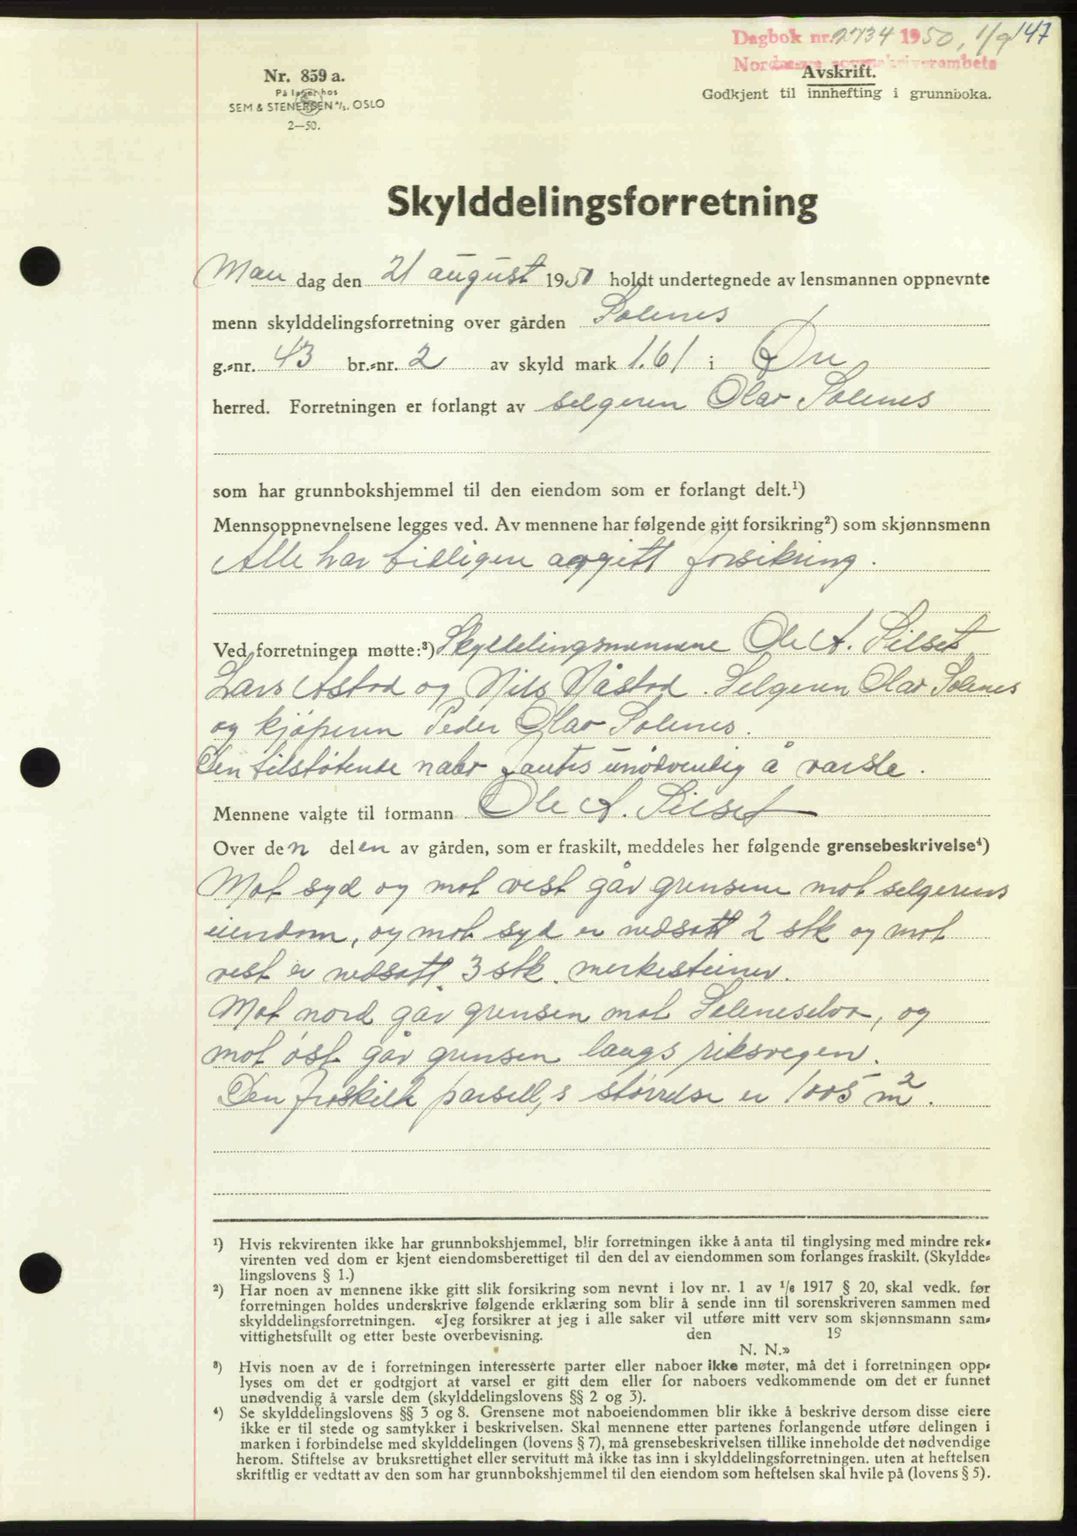 Dagbok nr. 2734 1950, 1/9 147
Nordmøre sorenskriverembete
Nr. 859 a.
På lager hos
SEM & STENERSEN A/S. OSLO
2—50.
Avskrift.
Godkjent til innhefting i grunnboka.
Skylddelingsforretning
Man dag den 21 august 1950 holdt undertegnede av lensmannen oppnevnte
menn skylddelingsforretning over gården Solenes
g.-nr. 43 br.-nr. 2 av skyld mark 1.61 i Øre
herred. Forretningen er forlangt av selgeren Olav Solenes
som har grunnbokshjemmel til den eiendom som er forlangt delt.¹)
Mennsoppnevnelsene legges ved. Av mennene har følgende gitt forsikring²) som skjønnsmenn
Alle har tidligere avgitt forsikring.
Ved forretningen møtte:³) Skylddelingsmennene Ole A. Silset
Lars Astad og Nils Våstad. Selgeren Olav Solenes
og kjøperen Peder Olav Solenes.
Den tilstøtende nabo fantes unødvendig å varsle.
Mennene valgte til formann Ole A. Silset
Over den delen av gården, som er fraskilt, meddeles her følgende grensebeskrivelse⁴)
Mot syd og mot vest går grensene mot selgerens
eiendom, og mot syd er nedsatt 2 stk og mot
vest er nedsatt 3 stk. merkesteiner.
Mot nord går grensen mot Soleneselva, og
mot øst går grensen langs riksvegen.
Den fraskilte parsell,s størrelse er 1005 m².
¹) Hvis rekvirenten ikke har grunnbokshjemmel, blir forretningen ikke å anta til tinglysing med mindre rek-
virenten ved dom er kjent eiendomsberettiget til den del av eiendommen som forlanges fraskilt. (Skyldde-
lingslovens § 1.)
²) Har noen av mennene ikke gitt slik forsikring som nevnt i lov nr. 1 av 1/6 1917 § 20, skal vedk. før
forretningen holdes underskrive følgende erklæring som blir å sende inn til sorenskriveren sammen med
skylddelingsforretningen. «Jeg forsikrer at jeg i alle saker vil utføre mitt verv som skjønnsmann sam-
vittighetsfullt og etter beste overbevisning. den 19
N. N.»
³) Hvis noen av de i forretningen interesserte parter eller naboer ikke møter, må det i forretningen opp-
lyses om det er godtgjort at varsel er gitt dem eller for naboers vedkommende om det er funnet
unødvendig å varsle dem (skylddelingslovens §§ 2 og 3).
⁴) Se skylddelingslovens §§ 3 og 8. Grensene mot naboeiendommen blir ikke å beskrive dersom disse eiere
ikke er til stede og samtykker i beskrivelsen. Skal mennene etter partenes forlangende utføre delingen i
marken i forbindelse med skylddelingen (lovens § 7), må grensebeskrivelsen tillike inneholde det nødvendige
herom. Stiftelse av bruksrettighet eller servitutt må ikke tas inn i skylddelingsforretningen. uten at heftelsen
skriftlig er vedtatt av den som har grunnbokshjemmel til den eiendom som heftelsen skal hvile på (lovens § 5).